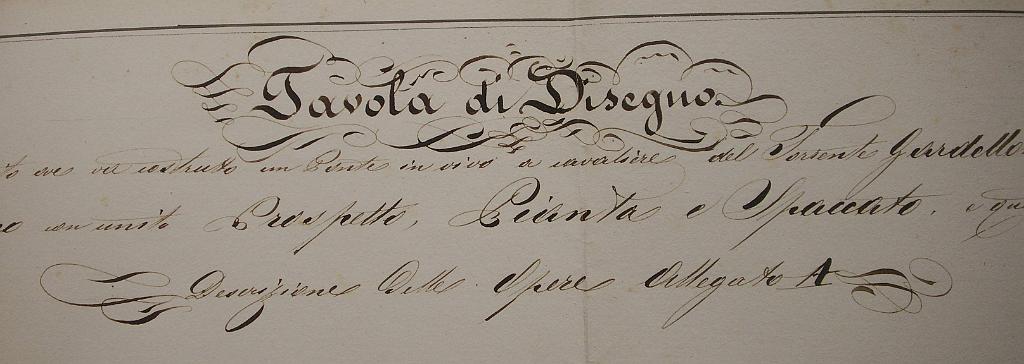 Tavola di Disegno.
to ove va costruto un Ponte in vivo a cavaliere del Torrente
con unito Prospetto, Pianta e Spaccato, e
Descrizione delle Opere Allegato A